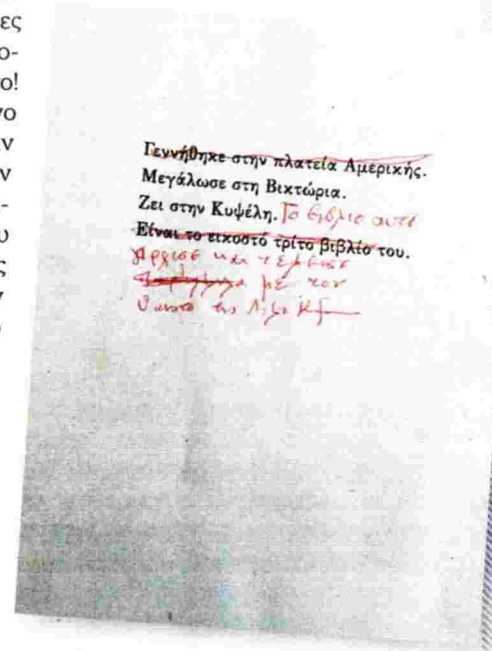 ες
ο-
ο!
νο
ν
ν
-
υ
ς
Γεννήθηκε στην πλατεία Αμερικής.
Μεγάλωσε στη Βικτώρια.
Ζει στην Κυψέλη. Το βιβλίο αυτό
Είναι το εικοστό τρίτο βιβλίο του.
άρχισε και τέλειωσε
με τον